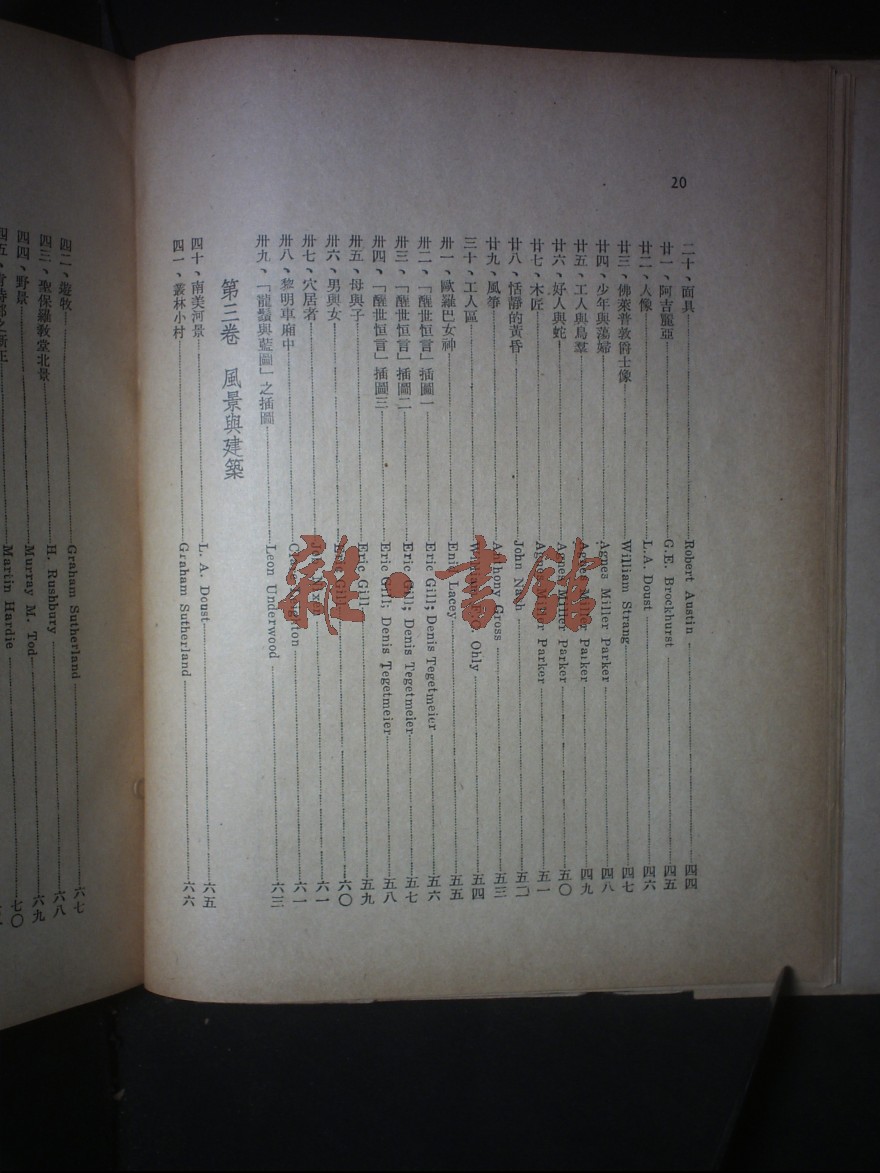 20
二十、面具 Robert Austin 四四
廿一、阿吉麗亞 G.E. Brockhurst 四五
廿二、人像 L.A. Doust 四六
廿三、佛萊普敦爵士像 William Strang 四七
廿四、少年與蕩婦 Agnes Miller Parker 四八
廿五、工人與鳥羣 Agnes Miller Parker 四九
廿六、好人與蛇 Agnes Miller Parker 五〇
廿七、木匠 Agnes Miller Parker 五一
廿八、恬靜的黃昏 John Nash 五二
廿九、風箏 Anthony Gross 五三
三十、工人區 Ohly 五四
卅一、歐羅巴女神 Enid Lacey 五五
卅二、「醒世恒言」插圖一 Eric Gill; Denis Tegetmeier 五六
卅三、「醒世恒言」插圖二 Eric Gill; Denis Tegetmeier 五七
卅四、「醒世恒言」插圖三 Eric Gill; Denis Tegetmeier 五八
卅五、母與子 Eric Gill 五九
卅六、男與女 Eric Gill 六〇
卅七、穴居者 六一
卅八、黎明車廂中 六一
卅九、「龍鬚與藍圖」之插圖 Leon Underwood 六三
第三卷 風景與建築
四十、南美河景 L. A. Doust 六五
四一、叢林小村 Graham Sutherland 六六
四二、遊牧 Graham Sutherland 六七
四三、聖保羅教堂北景 H. Rushbury 六八
四四、野景 Murray M. Tod 六九
四五、 Martin Hardie 七〇
雜·書館